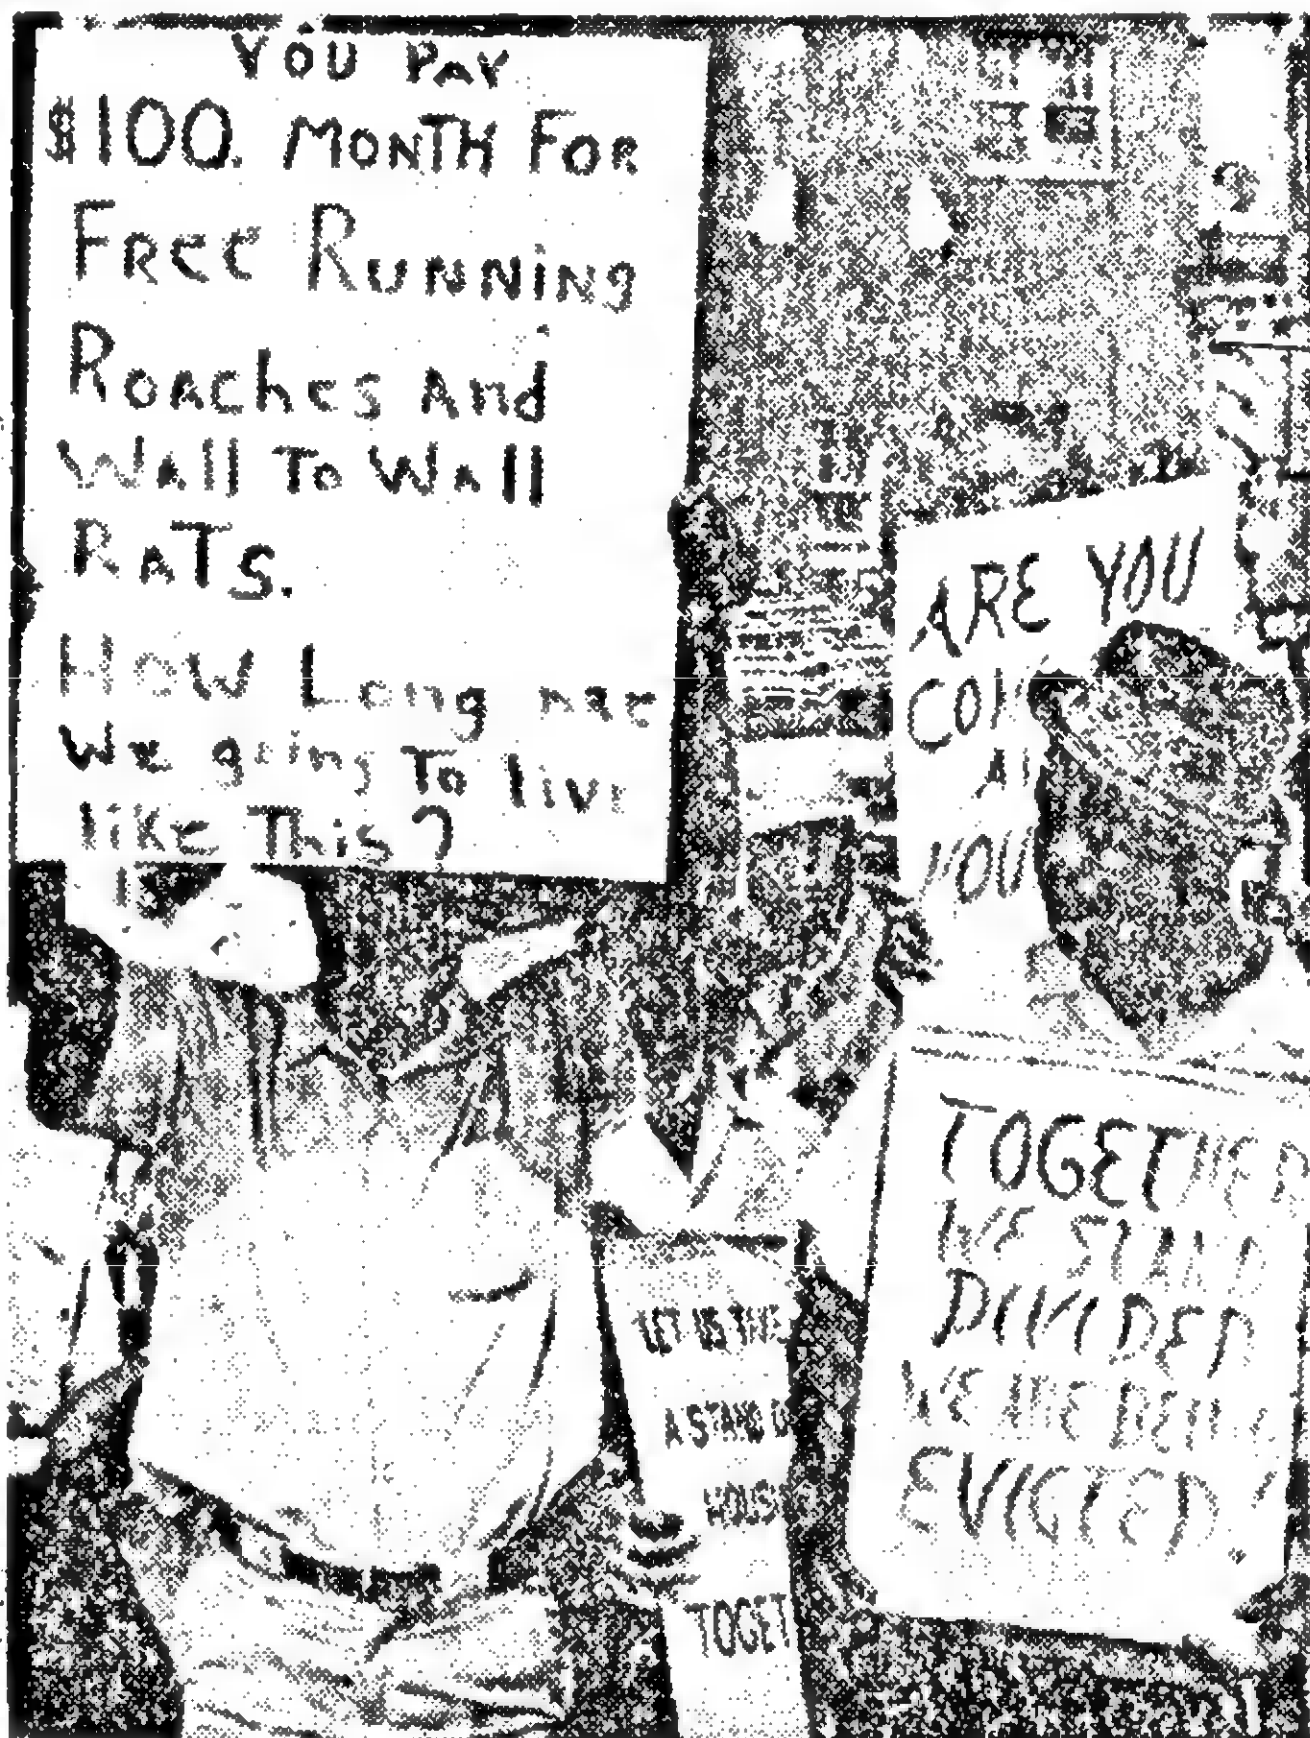 YOU PAY
$100. MONTH FOR
FREE RUNNING
ROACHES And
WAll To WAll
RATS.
How Long are
We going To live
like This?
ARE YOU
YOU
TOGETHER
WE STAND
DIVIDED
WE ARE BEIN
EVICTED
LET US THE
A STAND
HOUS
TOGET